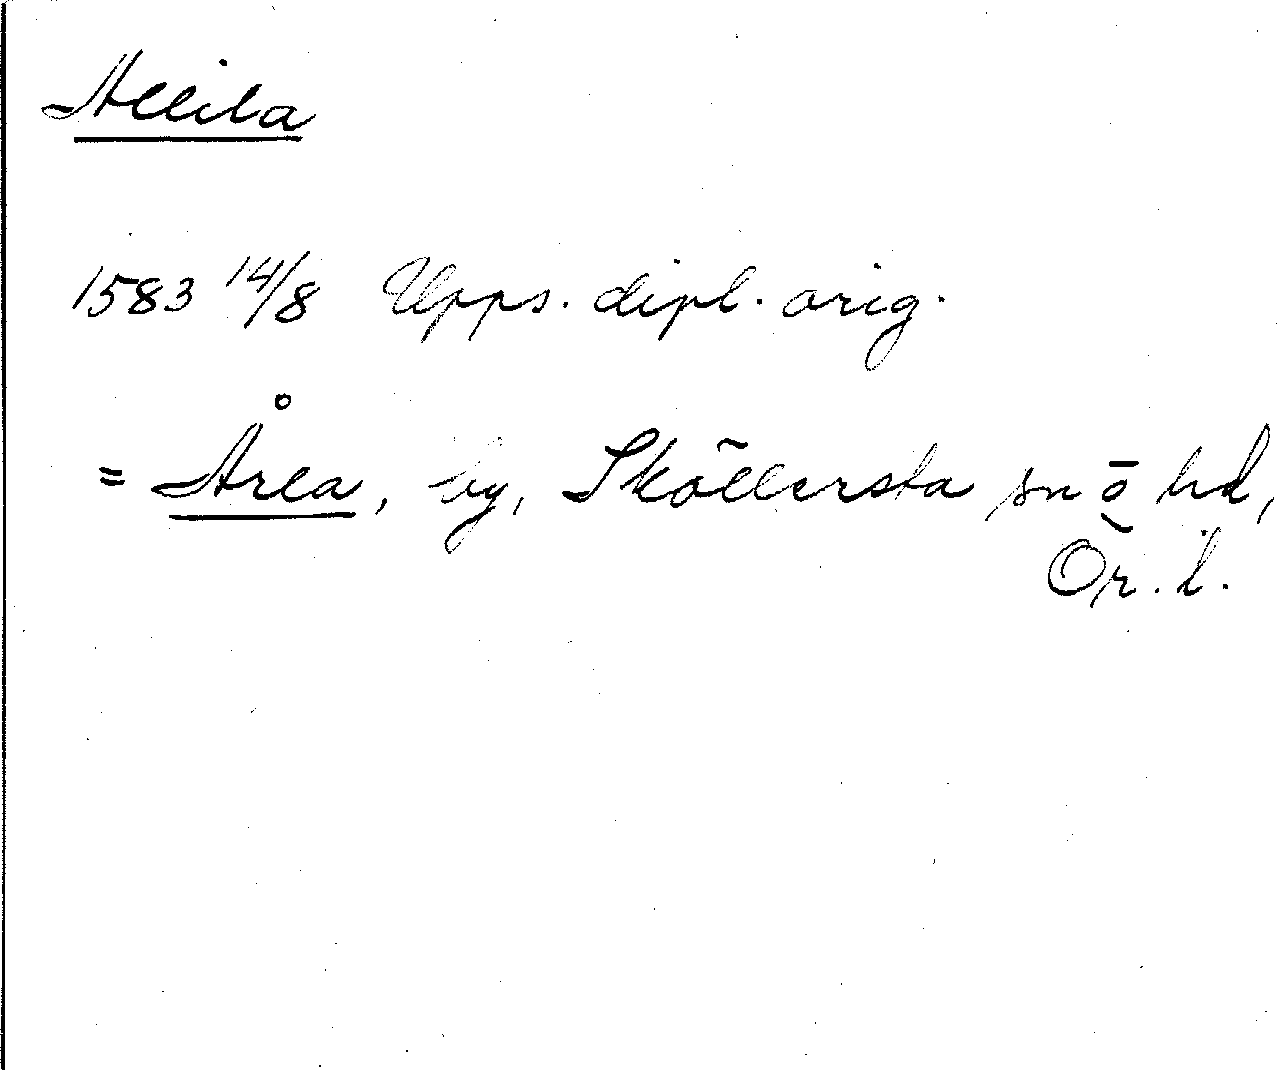 Alila
1583 14/8 Upps. dipl. orig.
= Årla, by, Sköllersta sn o hd,
Ör. l.